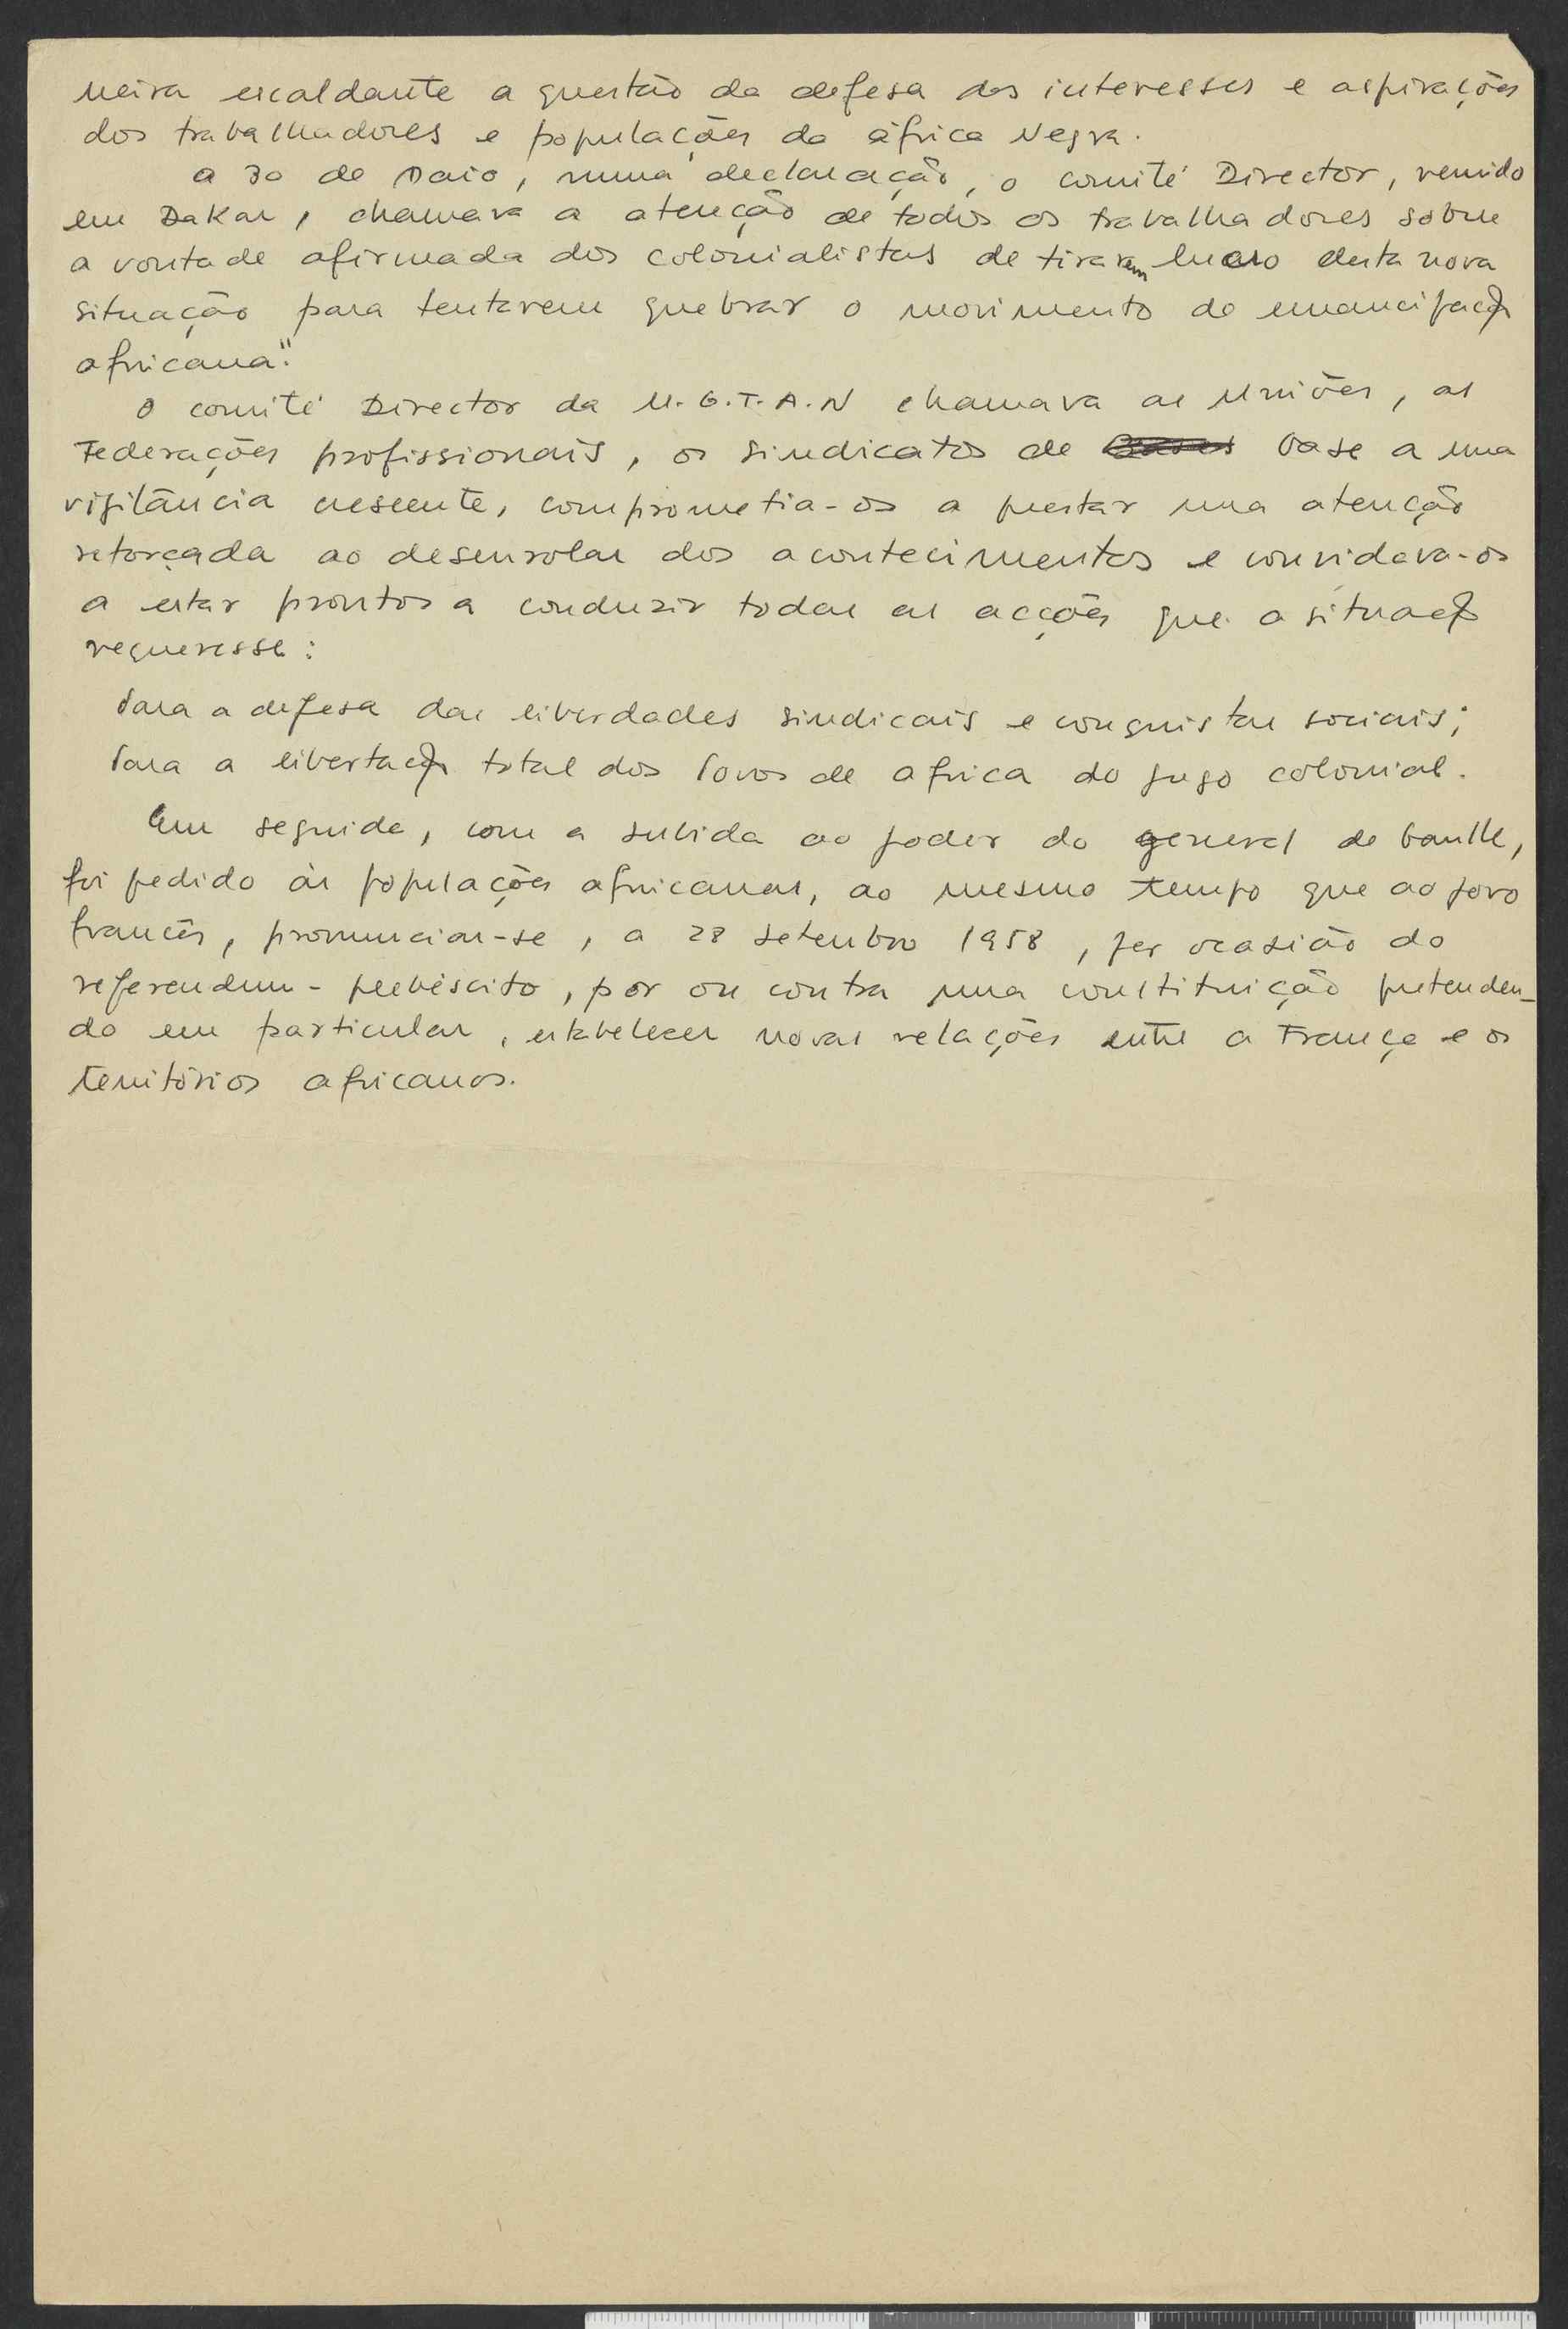 neira escaldante a questão da defesa dos interesses e aspirações
dos trabalhadores e populações da àfrica Negra.
a 30 de Maio, numa declaração, o comité Director, reunido
em Dakar, chamava a atenção de todos os trabalhadores sobre
a vontade afirmada dos colonialistas de tirarem lucro desta nova
situação para tentarem quebrar o movimento de emancipação
africana".
O comité Director da U.G.T.A.N chamava as Uniões, as
Federações profissionais, os sindicatos de base a uma
vigilância crescente, comprometia-os a prestar uma atenção
reforçada ao desenrolar dos acontecimentos e convidava-os
a estar prontos a conduzir todas as acções que a situação
requeresse:
Para a defesa das liberdades sindicais e conquistas sociais;
Para a libertação total dos Povos de africa do jugo colonial.
Em seguida, com a subida ao poder do general de Gaulle,
foi pedido às populações africanas, ao mesmo tempo que ao povo
francês, pronunciar-se, a 28 setembro 1958, por ocasião do
referendum-plebiscito, por ou contra uma constituição pretenden-
do em particular, estabelecer novas relações entre a França e os
territórios africanos.